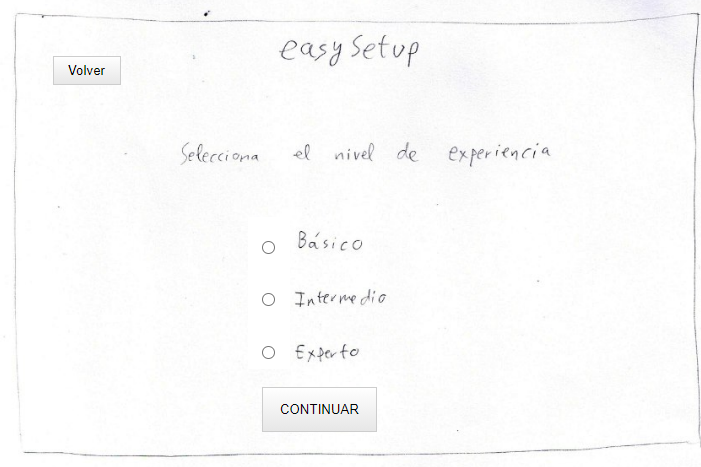 easySetup
Volver
Selecciona el nivel de experiencia
Básico
Intermedio
Experto
CONTINUAR